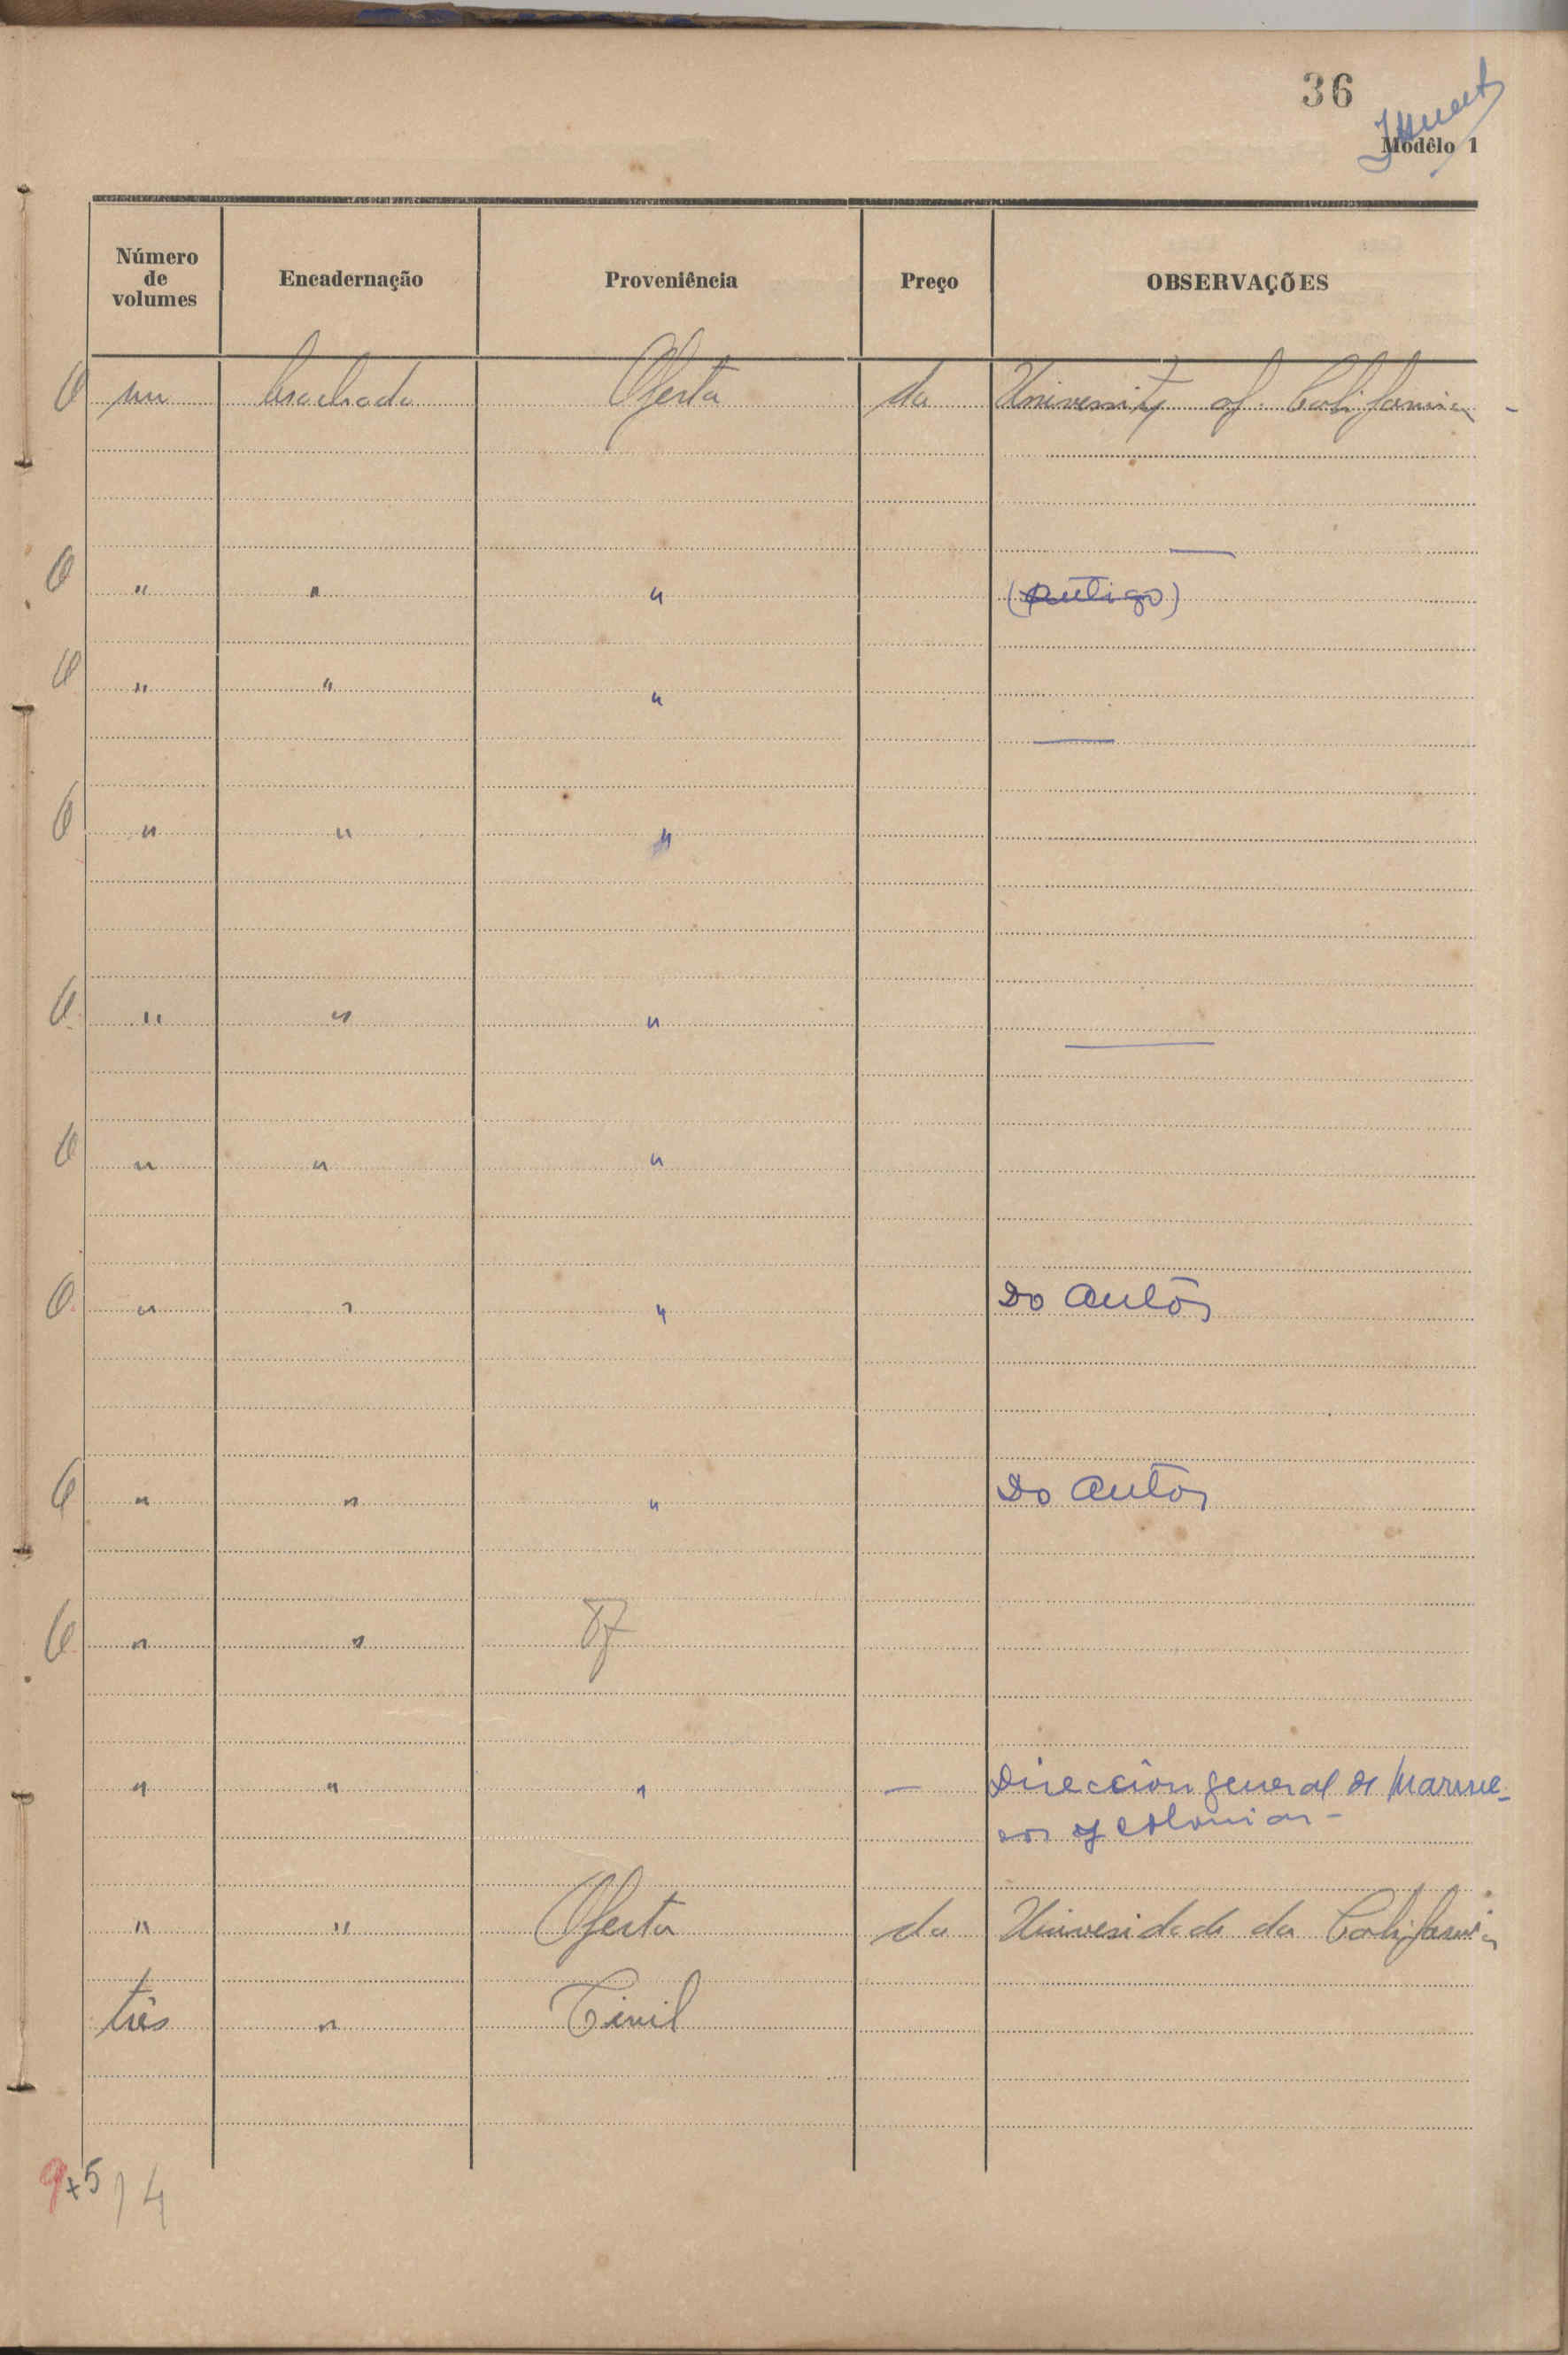 36
Modêlo 1
Número de volumes Encadernação Proveniência Preço OBSERVAÇÕES
O um brochado Oferta da University of California -
O " " " (Antigo)
O " " "
O " " "
O " " "
O " " "
O " " " Do autôr
O " " " Do autôr
O " "
" " " — Direccion general de Marrue-
cos y colonias -
" " Oferta da Universidade da California
três "
9+5 14